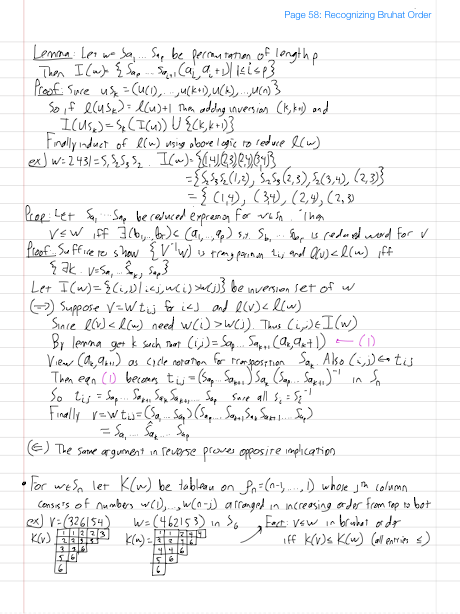 Page 58: Recognizing Bruhat Order
Lemma: Let w= Sa₁... Sap be permutation of length p
Then I(w)= { Sap ... Sai+1 (ai, ai+1) | 1≤i≤p}
Proof: Since uSk = (u(1), ..., u(k+1), u(k), ..., u(n))
So if l(uSk) = l(u)+1 then adding inversion (k,k+1) and
I(uSk) = Sk(I(u)) ∪ {(k,k+1)}
Finally induct of l(w) using above logic to reduce l(w)
ex) w=2431=S₁S₂S₃S₂ I(w)={(1,4)(2,3)(2,4)(3,4)}
={S₂S₃S₂(1,2), S₂S₃(2,3), S₂(3,4), (2,3)}
= { (1,4), (3,4), (2,4), (2,3)
Prop: Let Sa₁ ... Sap be reduced expression for w∈Sn. Then
v≤w iff ∃(b₁,...,br)⊂(a₁,...,ap) s.t. Sb₁ ... Sbr is reduced word for v
Proof: Suffice to show { v⁻¹w is transposition tij and l(v)<l(w) iff
{ ∃k v=Sa₁ ... Ŝak ... Sap}
Let I(w)={(i,j) | i<j, w(i)>w(j)} be inversion set of w
(⟹) Suppose v=w tij for i<j and l(v)<l(w)
Since l(v)<l(w) need w(i)>w(j). Thus (i,j)∈I(w)
By lemma get k such that (i,j)= Sap ... Sak+1 (ak, ak+1) ← (1)
View (ak, ak+1) as cycle notation for transposition Sak. Also (i,j)↔tij
Then eqn (1) becomes tij=(Sap ... Sak+1) Sak (Sap ... Sak+1)⁻¹ in Sn
So tij= Sap ... Sak+1 Sak Sak+1 ... Sap since all Si=Si⁻¹
Finally v=w tij=(Sa₁ ... Sap)(Sap ... Sak+1 Sak Sak+1 ... Sap)
= Sa₁ ... Ŝak ... Sap
(⟸) The same argument in reverse proves opposite implication
• For w∈Sn let K(w) be tableau on ρn=(n-1,...,1) whose jth column
consists of numbers w(1),...,w(n-j) arranged in increasing order from top to bot
ex) v=(326154) w=(462153) in S₆ Fact: v≤w in bruhat order
K(v) K(w)= iff K(v)≤K(w) (all entries ≤)